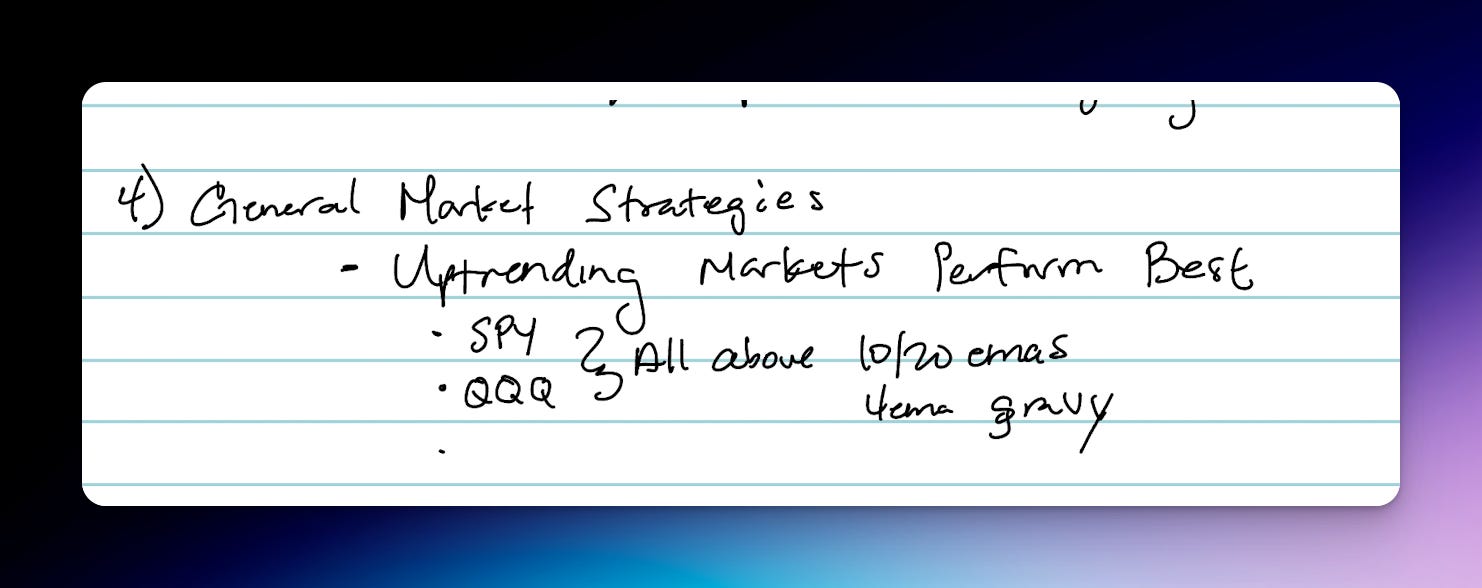 4) General Market Strategies
- Uptrending Markets Perform Best
· SPY } All above 10/20 emas
· QQQ
4ema gravy
·